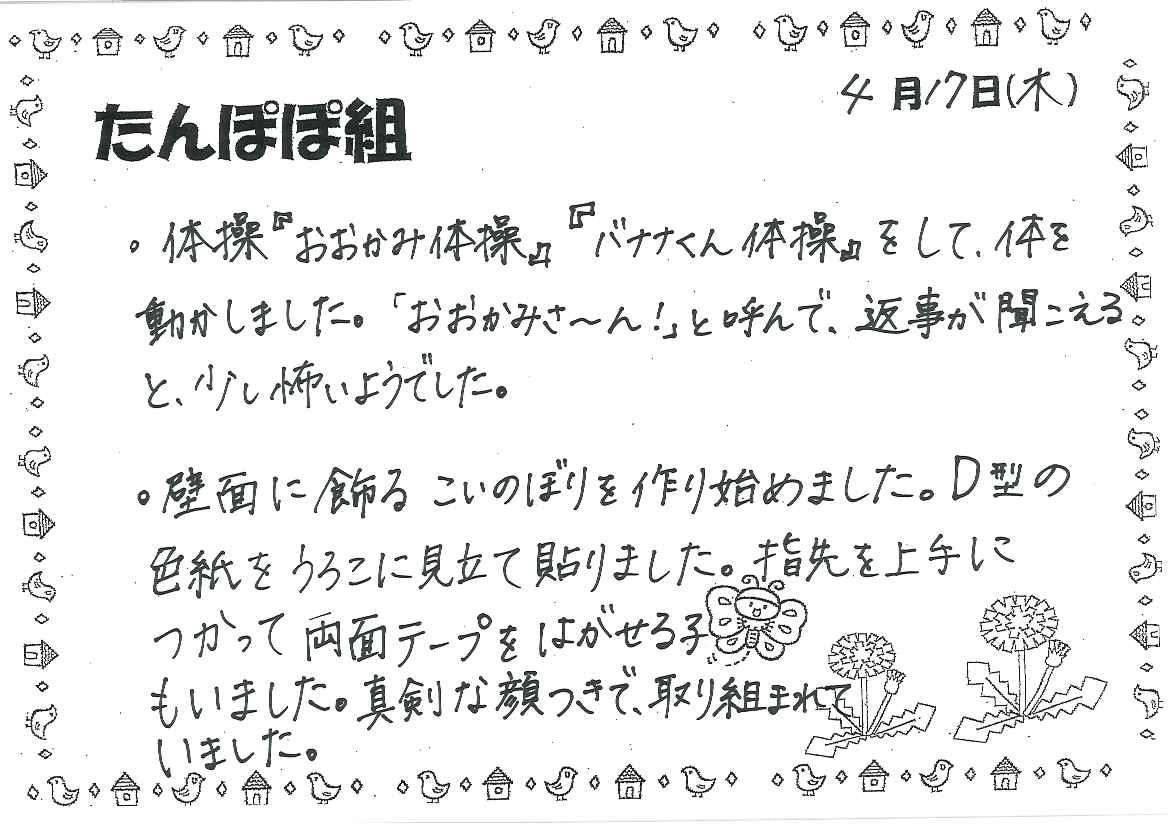 4月17日(木)
たんぽぽ組
。体操『おおかみ体操』『バナナくん体操』をして、体を
動かしました。「おおかみさ～ん!」と呼んで、返事が聞こえる
と、少し怖いようでした。
。壁面に飾るこいのぼりを作り始めました。D型の
色紙をうろこに見立て貼りました。指先を上手に
つかって両面テープをはがせる子
もいました。真剣な顔つきで、取り組まれて
いました。